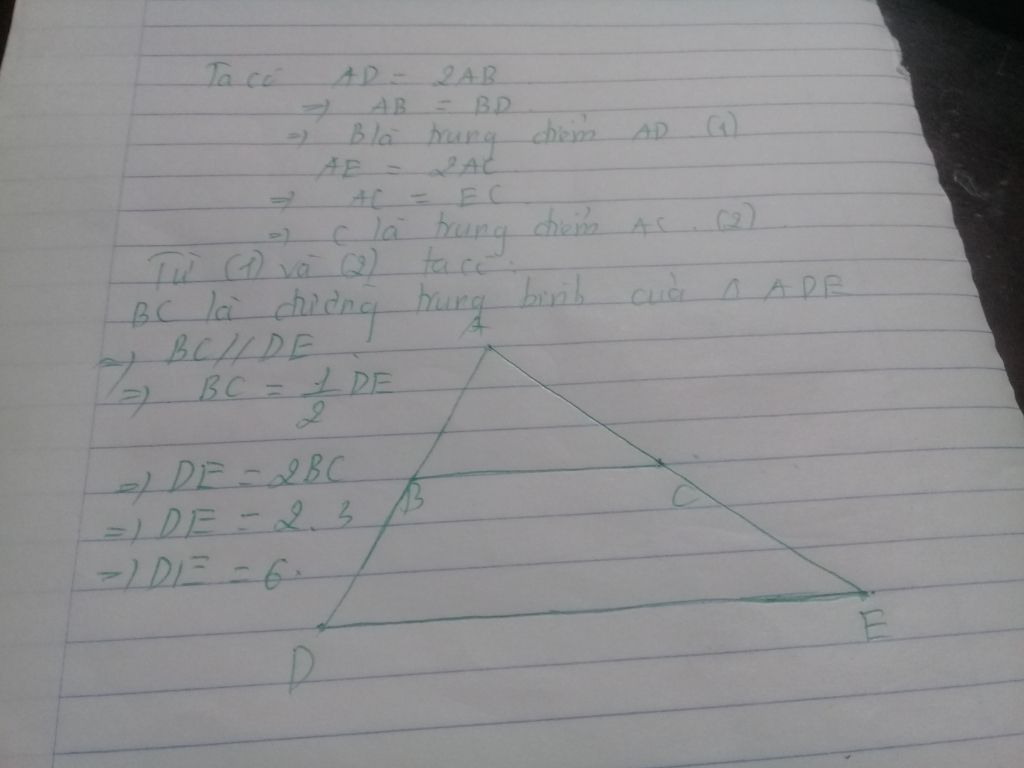 Ta có AD = 2AB
=> AB = BD.
=> B là trung điểm AD (1)
AE = 2AC
=> AC = EC
=> C là trung điểm AC. (2)
Từ (1) và (2) ta có:
BC là đường trung bình của Δ ADE
=> BC // DE
=> BC = 1/2 DE
=> DE = 2BC
=> DE = 2.3
=> DE = 6.
A
B
C
D
E